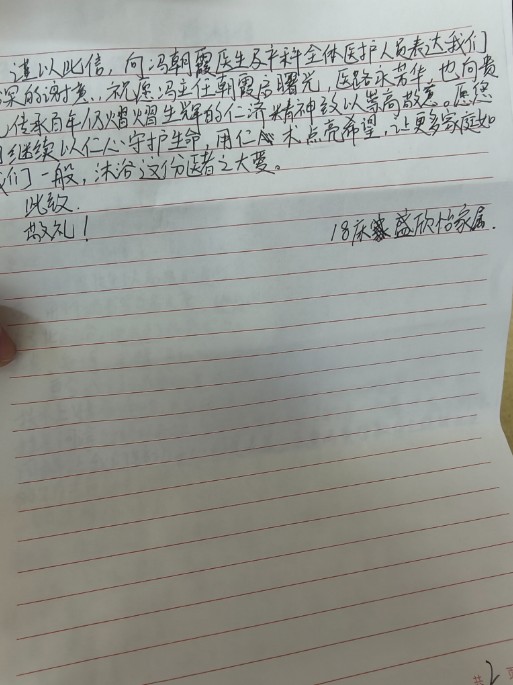 谨以此信，向冯朝霞医生及产科全体医护人员表达我们
深的谢意，祝愿冯主任朝霞启曙光，医路永芳华，也向贵
传承百年仍熠熠生辉的仁济精神致以崇高敬意。愿您
们继续以仁心守护生命，用仁术点亮希望，让更多家庭如
我们一般，沐浴这份医者之大爱。
此致
敬礼！
18床盛欣怡家属.
共2页